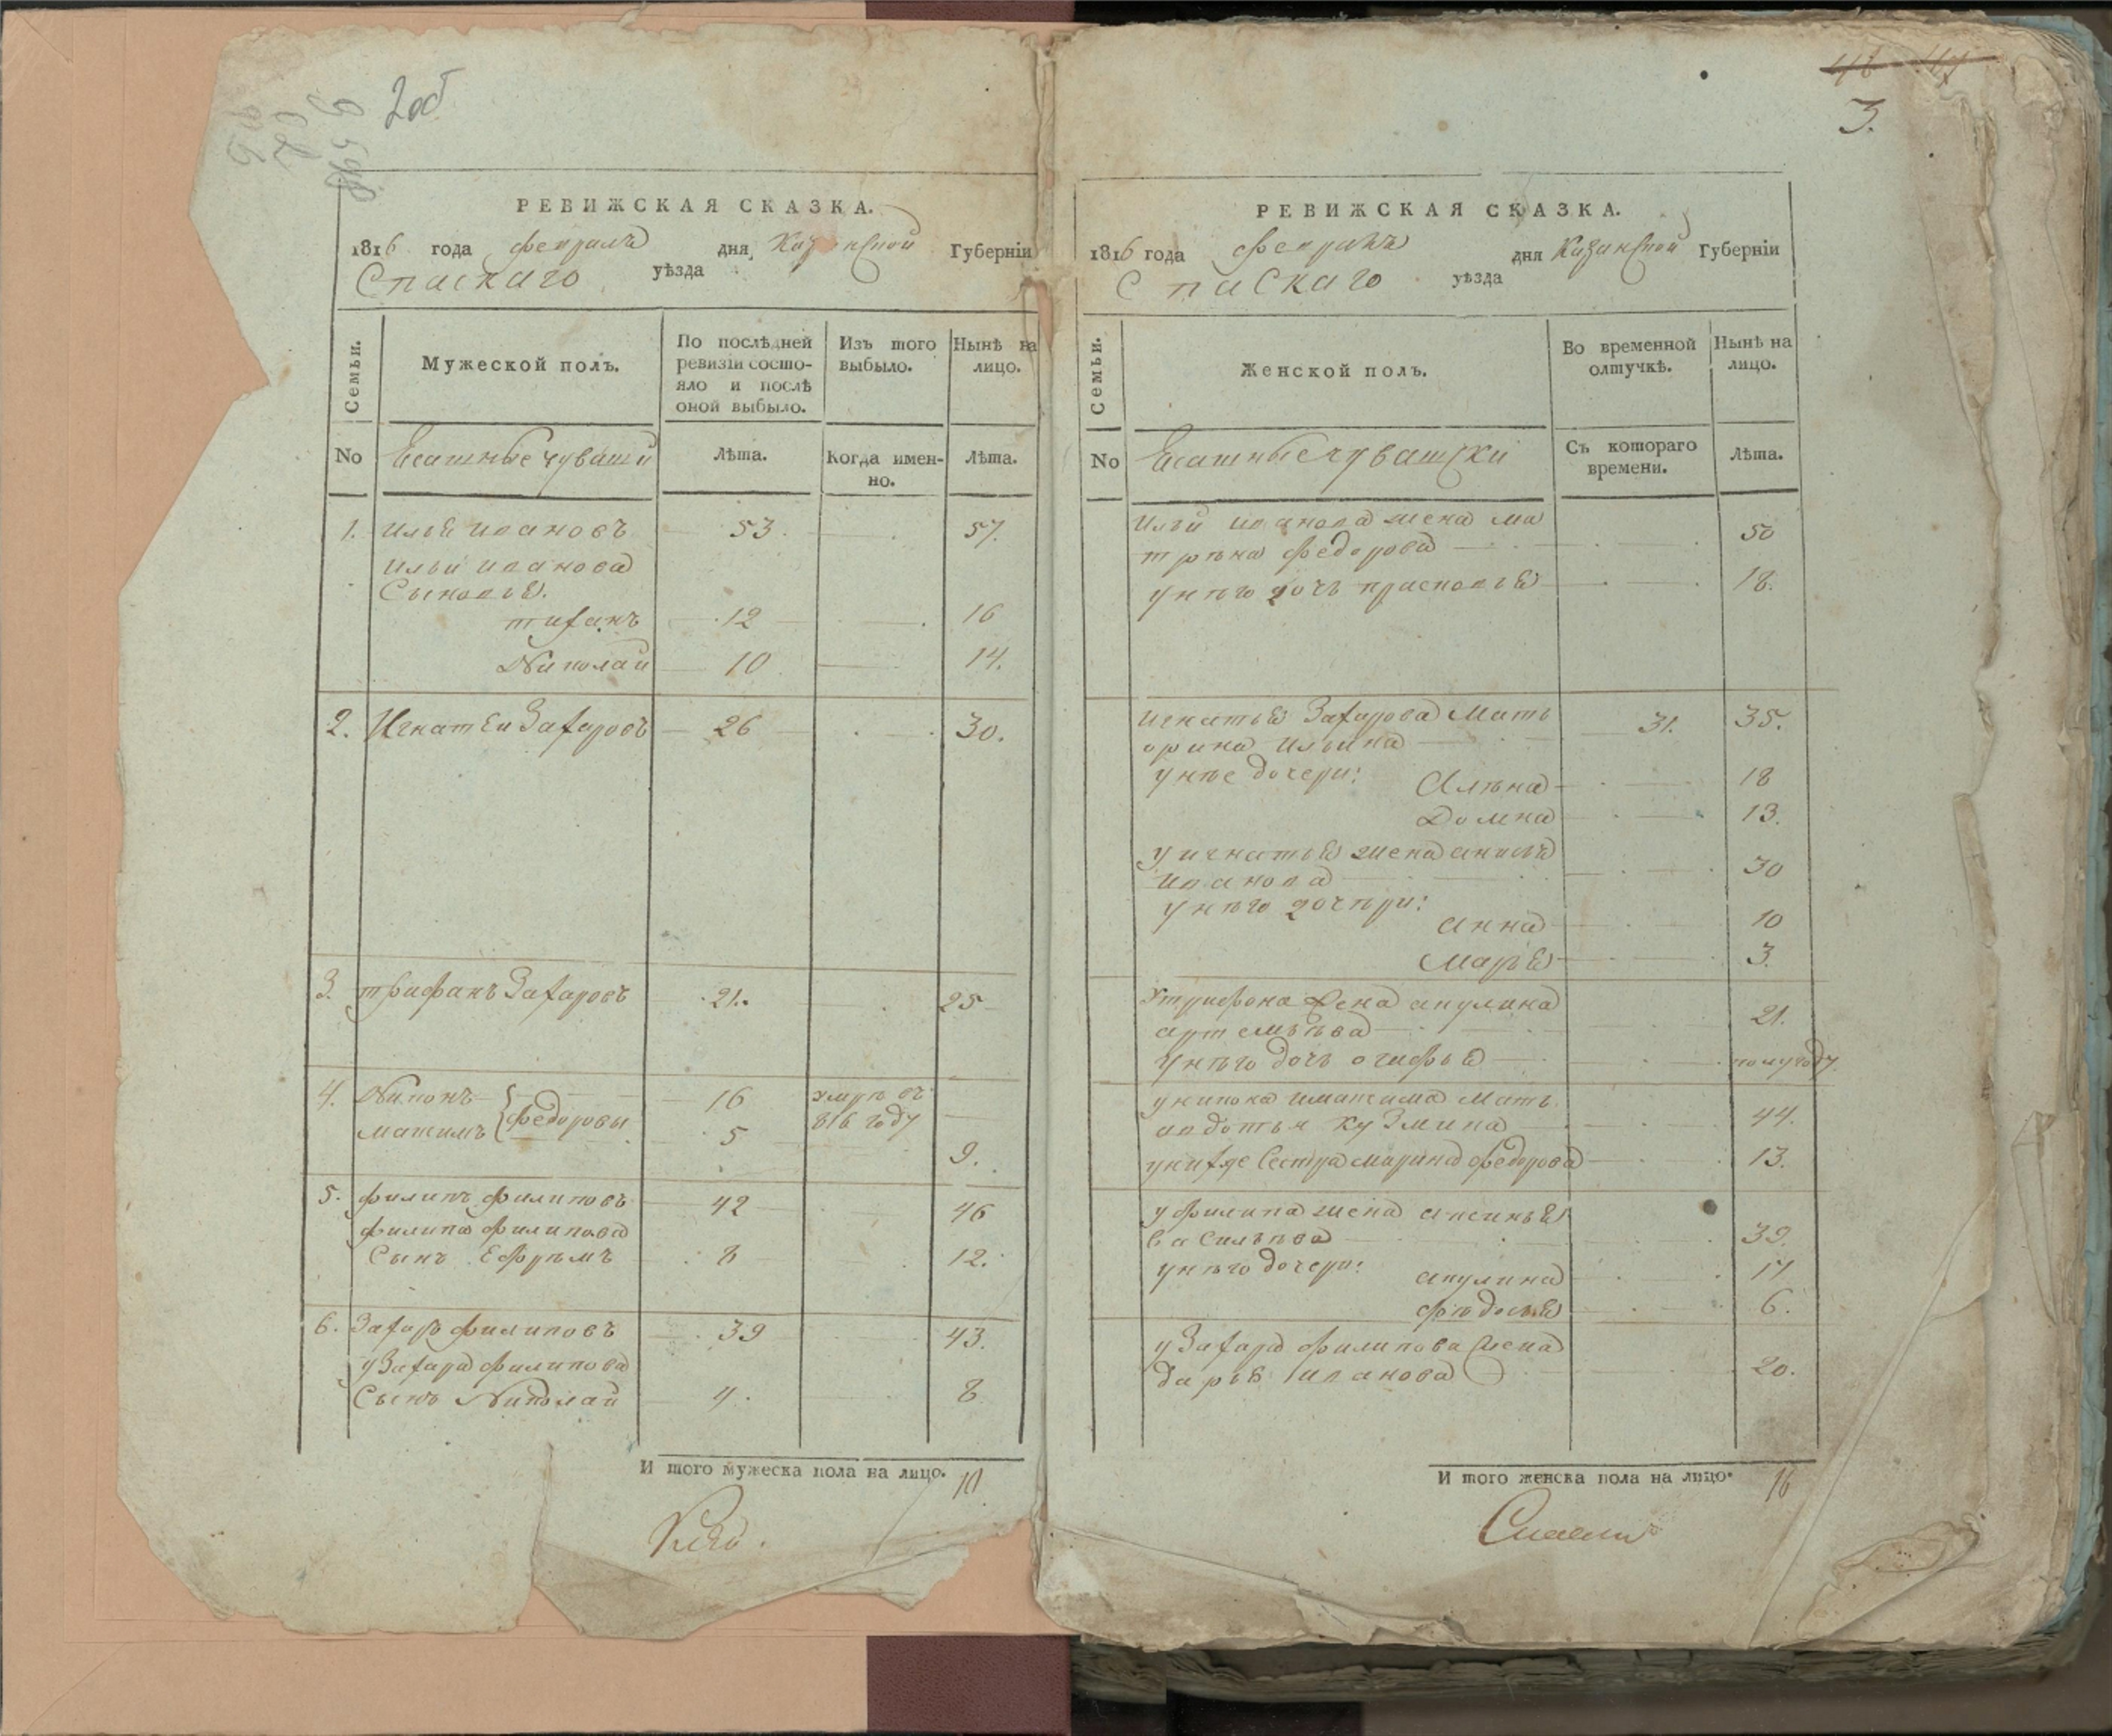 2 об
РЕВИЖСКАЯ СКАЗКА.
1816 года февраля дня Казанской Губерніи
Спаскаго уѣзда
Семьи.
Мужеской полъ.
По послѣдней ревизіи состо-
яло и послѣ оной выбыло.
Изъ того выбыло.
Нынѣ на лицо.
No
Есашные чуваши
Лѣта.
Когда имен-
но.
Лѣта.
1. илья ивановъ 53. 57.
ильи иванова
Сыновья.
тифанъ 12 16
Николай 10 14.
2. Игнатей Захаровъ 26 30.
3. трифанъ Захаровъ 21. 25
4. Никонъ 16 умре въ
максимъ федоровы 5 816 году
9.
5. филипъ филиповъ 42 46
филипа филипова
Сынъ Ефремъ 8 12.
6. Захаръ филиповъ 39 43.
у Захара филипова
Сынъ Николай 4. 8
И того мужеска пола на лицо. 10.
3.
РЕВИЖСКАЯ СКАЗКА.
1816 года февраля дня Казанской Губерніи
Спаскаго уѣзда
Семьи.
Женской полъ.
Во временной
отлучкѣ.
Нынѣ на
лицо.
No
Есашные чувашски
Съ котораго
времени.
Лѣта.
ильи иванова жена ма
трена федорова 50
у него дочь прасковья 18.
игнатья Захарова Мать 31. 35.
орина ильина
у нее дочери: Алена 18
Домна 13.
у игнатья жена анисья
иванова 30
у него дочери:
анна 10
Марья 3.
у трифона жена акулина
артемьева 21.
у него дочь огафья полугоду
у никона и максима мать
авдотья кузмина 44.
у них же Сестра марина федорова 13.
у филипа жена аксинья
васильева 39.
у него дочери: акулина 17
федосья 6.
у Захара филипова жена
дарья иванова 20.
И того женска пола на лицо. 16